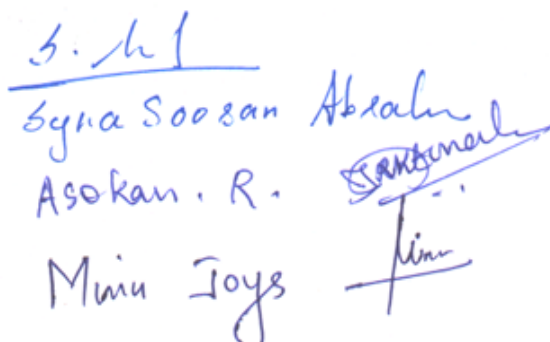 Syna Soosan Abrah
Asokan. R.
Minu Joys Minu